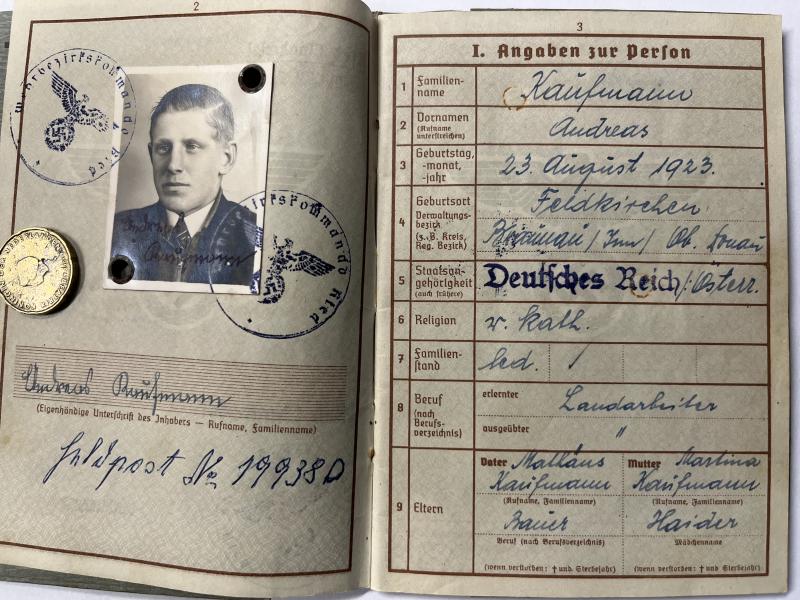 2
Wehrbezirkskommando Ried
Wehrbezirkskommando Ried
Andreas
Kaufmann
Andreas Kaufmann
(Eigenhändige Unterschrift des Inhabers — Rufname, Familienname)
Feldpost No 19938D
3
I. Angaben zur Person
1 Familien-name Kaufmann
2 Vornamen (Rufname unterstreichen) Andreas
3 Geburtstag, -monat, -jahr 23. August 1923.
4 Geburtsort Feldkirchen
Verwaltungsbezirk (z. B. Kreis, Reg. Bezirk) Braunau/Inn/Ob. Donau
5 Staatsan-gehörigkeit (auch frühere) Deutsches Reich/Österr.
6 Religion r. kath.
7 Familien-stand led. /
8 Beruf (nach Berufs-verzeichnis) erlernter Landarbeiter
ausgeübter "
9 Eltern
Vater Mathäus Mutter Martina
Kaufmann Kaufmann
(Rufname, Familienname) (Rufname, Familienname)
Bauer Haider
Beruf (nach Berufsverzeichnis) Mädchenname
(wenn verstorben: † und Sterbejahr) (wenn verstorben: † und Sterbejahr)